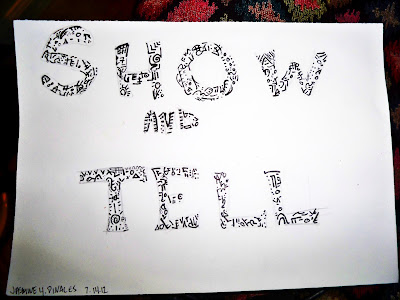 SHOW
AND
TELL
JASMINE Y. PINALES 7.14.12